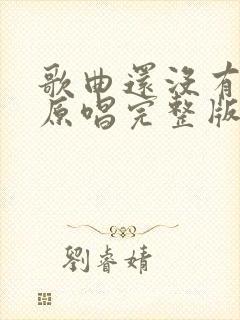 歌曲還沒有
原唱完整版
劉睿婧